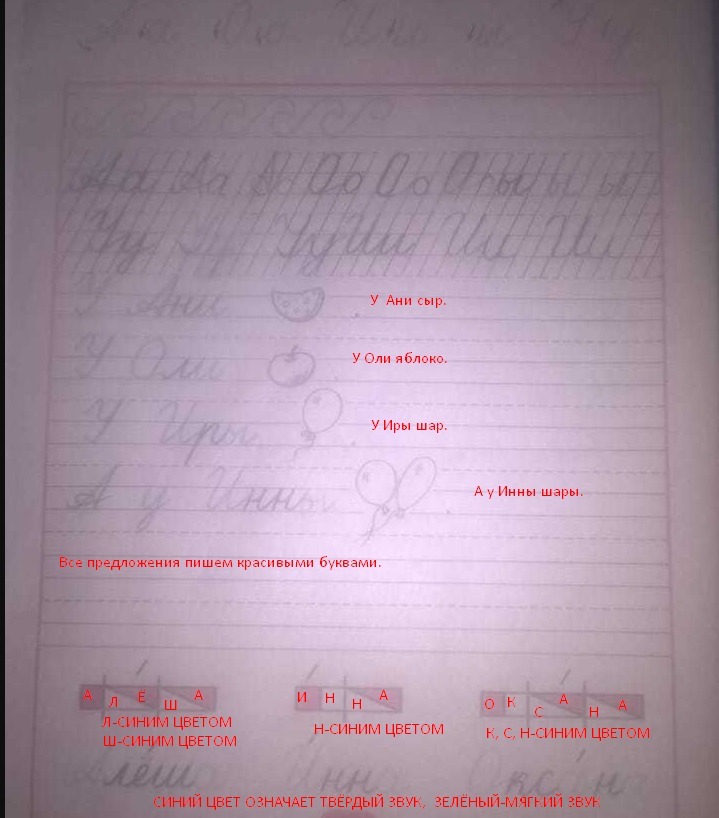 Аа Аа А Оо Оо О ы ы ы ы
Уу У УуИи Ии Ии
У Ани . У Ани сыр.
У Оли . У Оли яблоко.
У Иры . У Иры шар.
А у Инны . А у Инны шары.
Все предложения пишем красивыми буквами.
А Л Ё Ш А И Н Н А О К С А Н А
Л-СИНИМ ЦВЕТОМ Н-СИНИМ ЦВЕТОМ К, С, Н-СИНИМ ЦВЕТОМ
Ш-СИНИМ ЦВЕТОМ
Алёша Инна Оксана
СИНИЙ ЦВЕТ ОЗНАЧАЕТ ТВЁРДЫЙ ЗВУК, ЗЕЛЁНЫЙ-МЯГКИЙ ЗВУК